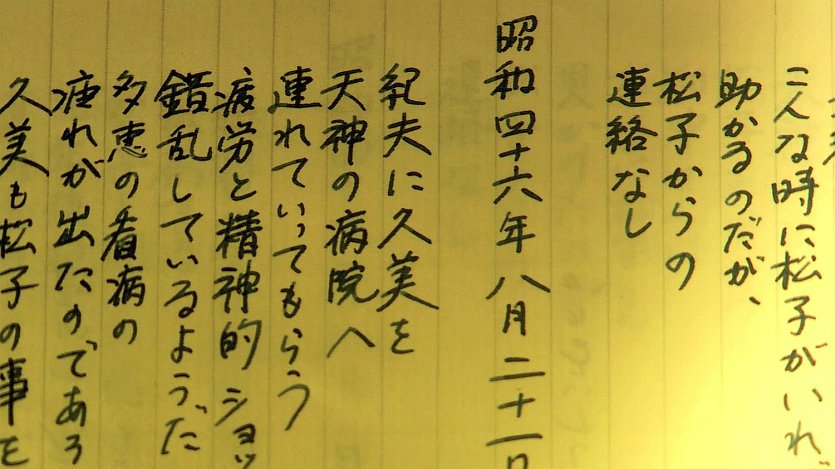 こんな時に松子がいれ
助かるのだが、
松子からの
連絡なし
昭和四十六年八月二十一日
紀夫に久美を
天神の病院へ
連れていってもらう
疲労と精神的ショッ
錯乱しているようだ
多恵の看病の
疲れが出たのであろ
久美も松子の事を